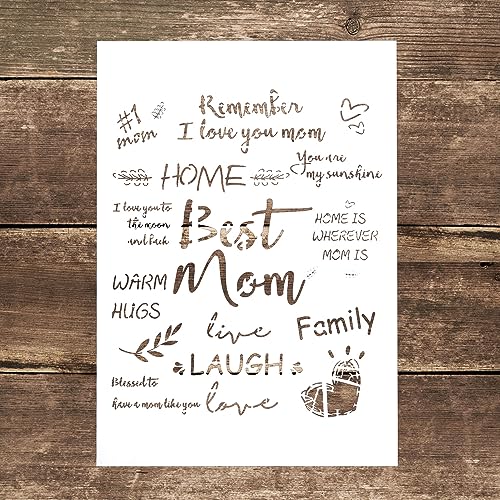 #1
mom
Remember
I love you mom
You are
my sunshine
HOME
I love you to
the moon
and back
Best
Mom
HOME IS
WHEREVER
MOM IS
WARM
HUGS
live
Family
LAUGH
Blessed to
have a mom like you
love